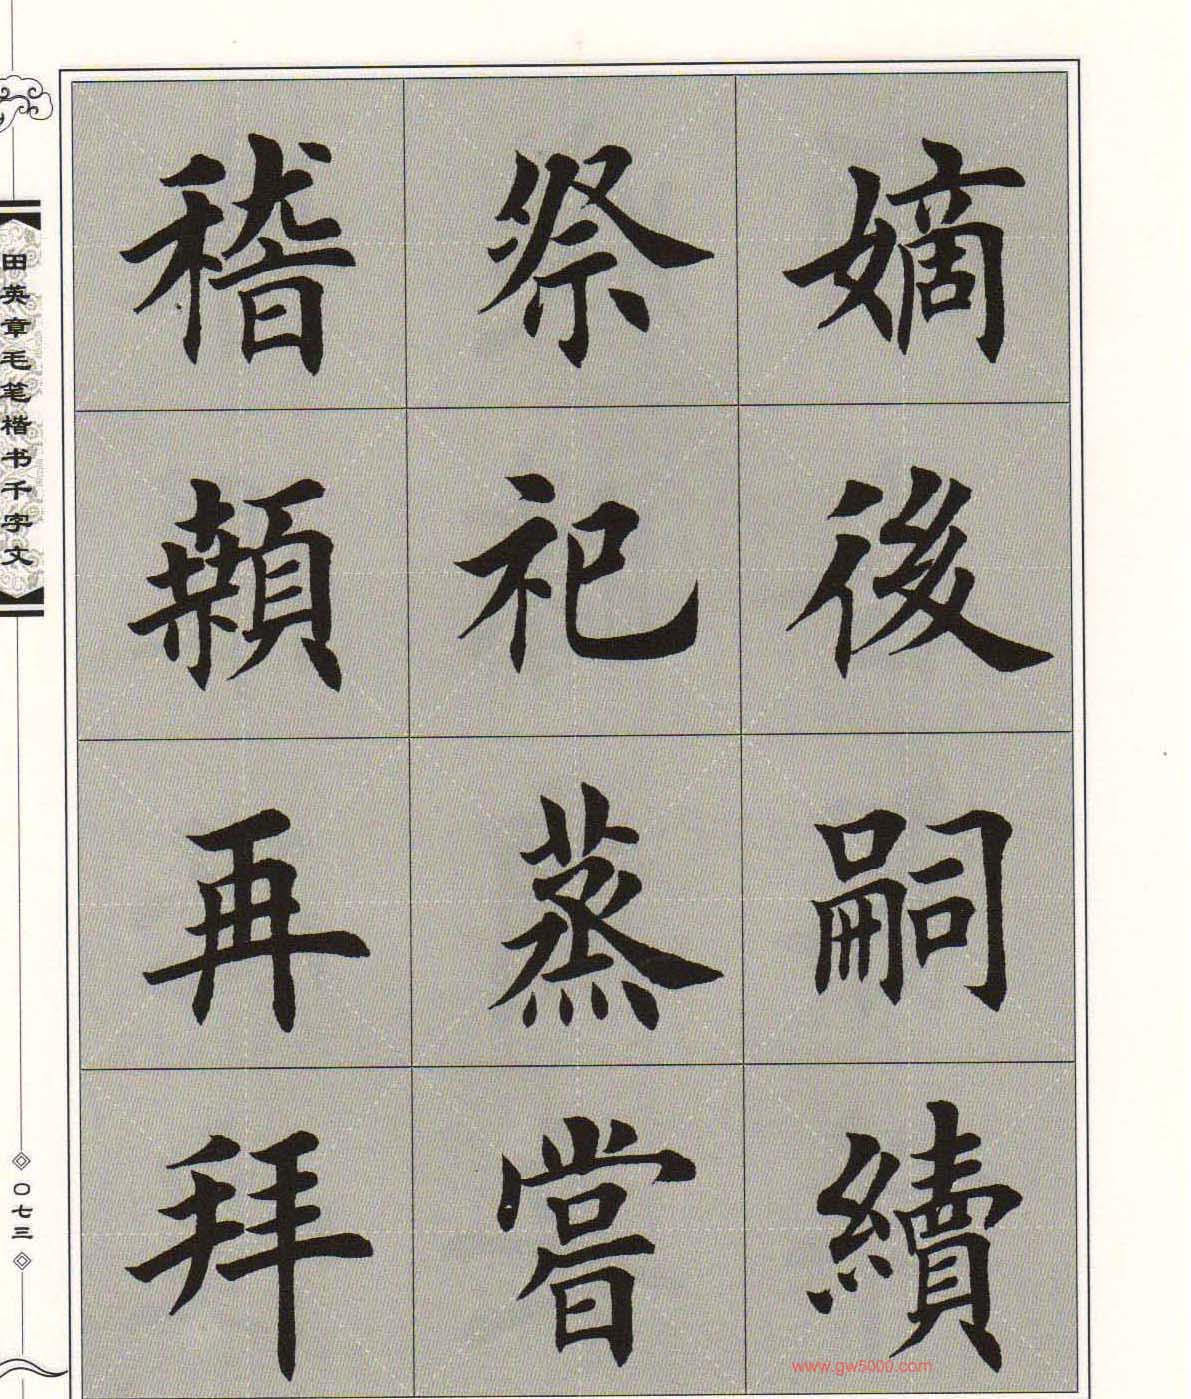 嫡後嗣續
祭祀蒸嘗
稽顙再拜
田英章毛笔楷书千字文
〇七三
www.gw5000.com